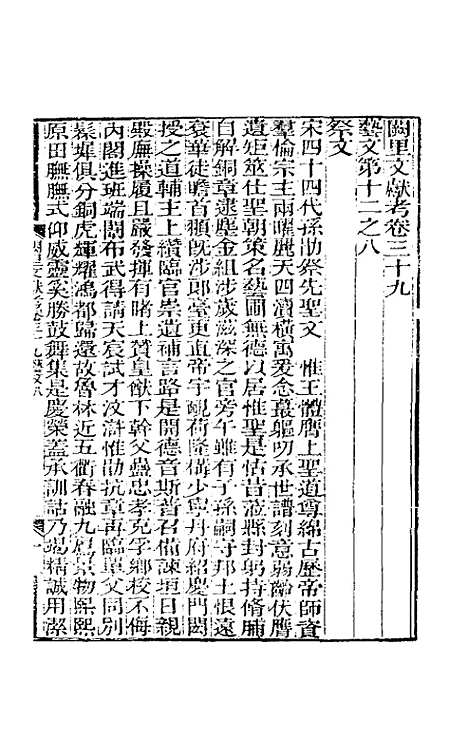 闕里文獻考卷三十九
藝文第十二之八
祭文
宋四十四代孫勖祭先聖文 惟王體膺上聖道尊綿古歷帝師資
羣倫宗主兩曜麗天四瀆橫寓爰念蕞軀叨承世譜刻意弱齡伏膺
遺矩筮仕聖朝策名藝圃無德以居惟聖是怙昔蒞縣封躬持脩脯
自解銅章逮塵金組涉歲滋深之官旁午雖有子孫嗣守邦土恨遠
袞華徒瞻首頖旣涉郎臺更直帝宇硯荷隆構少寧丹府紹慶門閎
授之道輔主上纘臨官崇遺補言路是開德音斯普召備諫垣日親
殿廡操履且嚴發揮有睹上贊皇猷下幹父蠱忠孝克孚鄉校不侮
內閣進班端闈布武得請天宸試才汶滸惟勖抗章再臨單父同別
鬆墀俱分銅虎輝耀鴻都歸還故魯林近五衢春融九扈景物熙熙
原田膴膴式仰威靈奚勝鼓舞集是慶榮蓋承訓詁乃竭精誠用潔